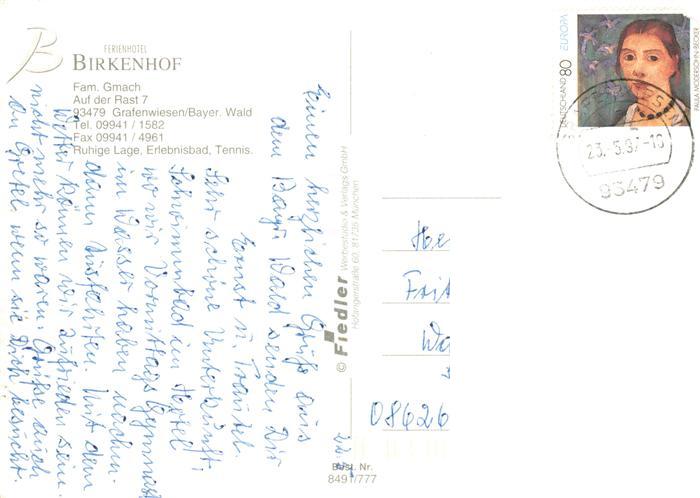 B
FERIENHOTEL
BIRKENHOF
Fam. Gmach
Auf der Rast 7
93479 Grafenwiesen/Bayer. Wald
Tel. 09941 / 1582
Fax 09941 / 4961
Ruhige Lage, Erlebnisbad, Tennis.
Einen herzlichen Gruß aus
dem Bayr. Wald senden Dir
Ernst u. Traudel.
Sehr schöne Unterkunft,
Schwimmbad im Hotel
wo wir Vormittags Gymnast
im Wasser haben, nachm.
dann Ausfahrten. Mit dem
Wetter können wir zufrieden sein.
nicht mehr so waren. Grüße auch
an Gretel, wenn sie Dich besucht.
© Fiedler Werbestudio & Verlags GmbH
Hofangerstraße 60, 81735 München
Best. Nr.
8491/777
EUROPA
DEUTSCHLAND 80
PAULA MODERSOHN-BECKER
23.-5.97-10
93479
He
Frit
Wa
08626